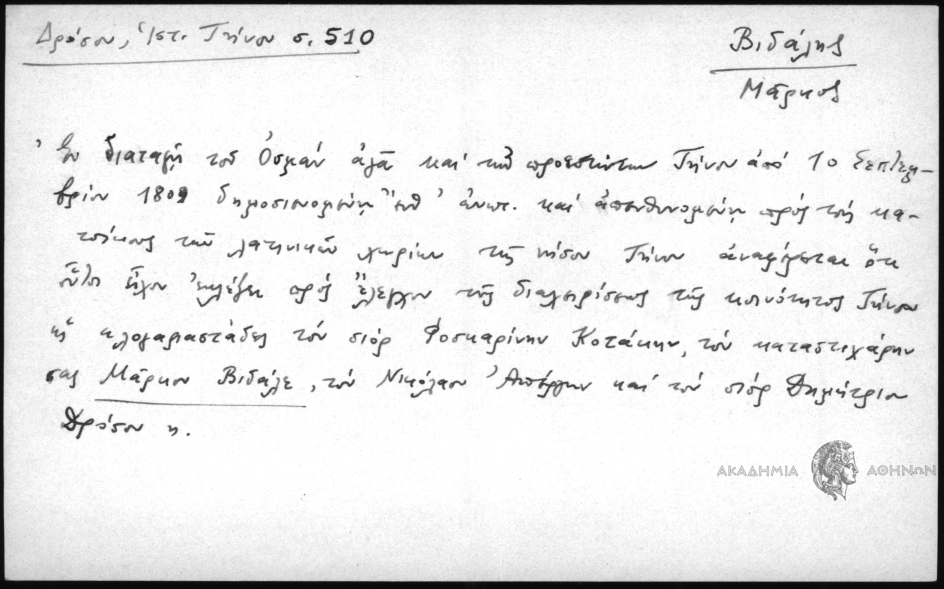 Δρόσου, Ἱστ. Τήνου σ. 510
Βιδάλης
Μᾶρκος
Ἐν διαταγῇ τοῦ Ὀσμάν ἀγᾶ καί τῶν προεστώτων Τήνου ἀπό 10 Σεπτεμ-
βρίου 1809 δημοσιευομένῃ ἐνθ' ἀνωτ. καί ἀπευθυνομένῃ πρός τούς κα-
τοίκους τῶν λατινικῶν χωρίων τῆς νήσου Τήνου ἀναφέρεται ὅτι
οὗτοι εἶχον ἐκλέξει πρός ἔλεγχον τῆς διαχειρίσεως τῆς κοινότητος Τήνου
"λογαριαστάδες τόν σιόρ Φοσκαρίνην Κοτάκην, τόν καταστιχάρην
σας Μᾶρκον Βιδάλε, τόν Νικόλαον Ἀπέργην καί τόν σιόρ Δημήτριον
Δρόσον".
ΑΚΑΔΗΜΙΑ ΑΘΗΝΩΝ